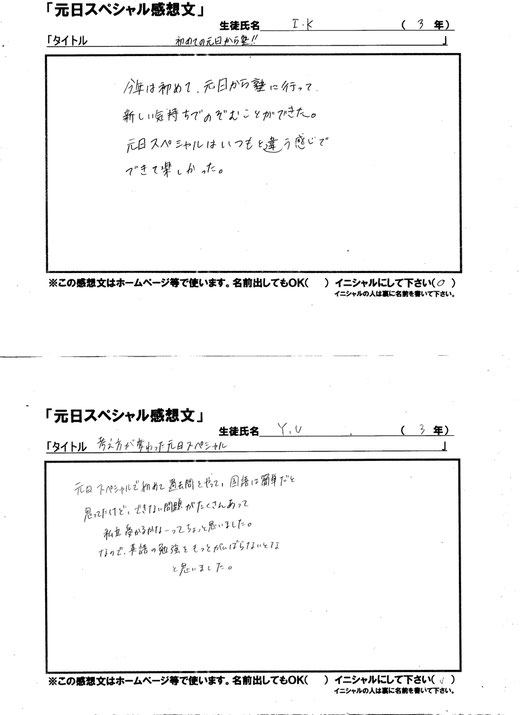 「元日スペシャル感想文」
生徒氏名 I.K (3年)
「タイトル 初めての元日から塾!! 」
今年は初めて、元日から塾に行って、
新しい気持ちでのぞむことができた。
元日スペシャルはいつもと違う感じで
できて楽しかった。
※この感想文はホームページ等で使います。名前出してもOK( ) イニシャルにして下さい(○)
イニシャルの人は裏に名前を書いて下さい。
「元日スペシャル感想文」
生徒氏名 Y.U (3年)
「タイトル 考え方が変わった元日スペシャル 」
元日スペシャルで初めて過去問をやって、国語は簡単だと
思ってたけど、できない問題がたくさんあって
私立受かるかなーってちょっと思いました。
なので、英語の勉強をもっとがんばらないとな
と思いました。
※この感想文はホームページ等で使います。名前出してもOK( ) イニシャルにして下さい(✓)
イニシャルの人は裏に名前を書いて下さい。